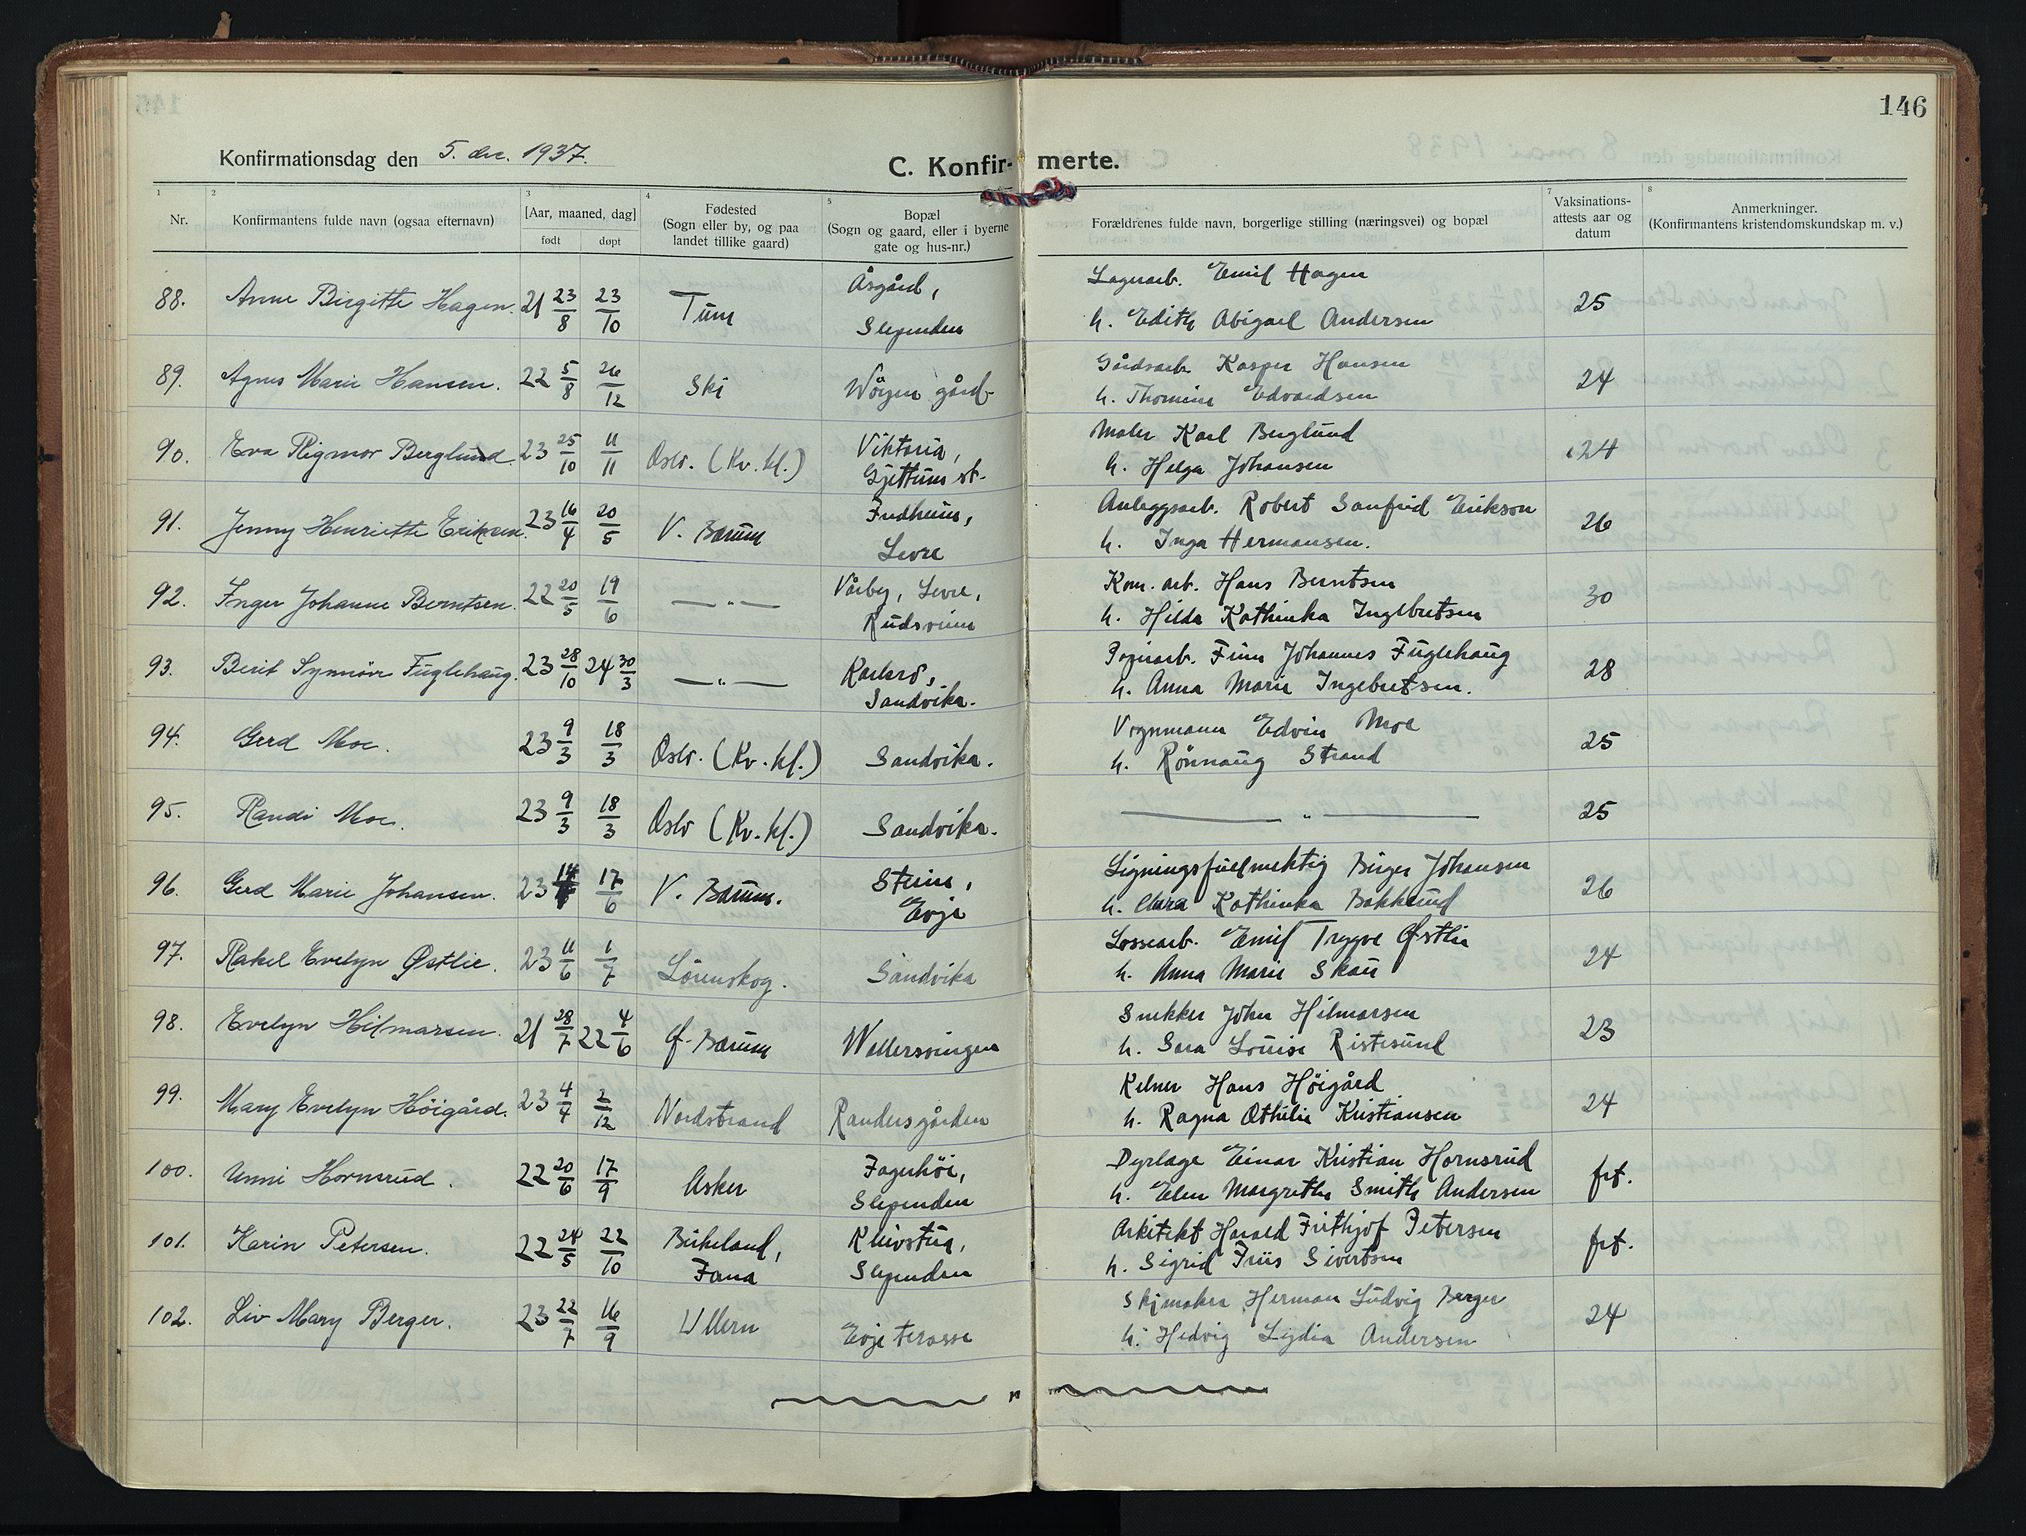 146
Konfirmationsdag den 5. dec. 1937.
C. Konfir- merte.
1 2 3 4 5 7 8
Nr.
Konfirmantens fulde navn (ogsaa efternavn)
[Aar, maaned, dag]
født døpt
Fødested
(Sogn eller by, og paa
landet tillike gaard)
Bopæl
(Sogn og gaard, eller i byerne
gate og hus-nr.)
Forældrenes fulde navn, borgerlige stilling (næringsvei) og bopæl
Vaksinations-
attests aar og
datum
Anmerkninger.
(Konfirmantens kristendomskundskap m. v.)
88. Anne Birgitte Hagen. 21 23/8 23/10 Tune Åsgård, Slependen
Lagerarb. Emil Hagen
h. Edith Abigael Andersen 25
89. Agnes Marie Hansen. 22 5/8 26/12 Ski Wøyen gård
Gårdsarb. Kasper Hansen
h. Thomine Edvardsen 24
90. Eva Rigmor Berglund. 23 25/10 11/11 Oslo. (Kv. kl.) Viktoria, Gjettum st.
Maler Karl Berglund
h. Helga Johansen 24
91. Jenny Henriette Eriksen. 23 16/4 20/5 V. Bærum Fredheim, Levre
Anleggsarb. Robert Sanfrid Erikson
h. Inga Hermansen. 26
92. Inger Johanne Berntsen. 22 20/5 19/6 — " — Vårby, Levre, Rudsveien
Kom. arb. Hans Berntsen
h. Hilda Kathinka Ingebretsen 30
93. Berit Synnøve Fuglehaug. 23 28/10 24 30/3 — " — Karlsro, Sandvika.
Papirarb. Finn Johannes Fuglehaug
h. Anna Marie Ingebretsen. 28
94. Gerd Moe. 23 9/3 18/3 Oslo. (Kv. kl.) Sandvika.
Vognmann Edvin Moe
h. Rønnaug Strand 25
95. Randi Moe. 23 9/3 18/3 Oslo (Kv. kl.) Sandvika.
— " — 25
96. Gerd Marie Johansen. 23 14 17/6 V. Bærum. Steine, Evje
Ligningsfullmektig Birger Johansen
h. Clara Kathinka Bakkelund 26
97. Rakel Evelyn Østlie. 23 11/6 1/7 Lørenskog. Sandvika
Lossearb. Emil Trygve Østlie
h. Anna Marie Skau 24
98. Evelyn Hilmarsen. 21 28/7 22 4/6 Ø. Bærum Wallersvingen
Snekker John Hilmarsen
h. Sara Louise Ristesund 23
99. Mary Evelyn Höigård. 23 4/4 2/12 Nordstrand Randersgården
Kelner Hans Höigård
h. Ragna Othilie Kristiansen 24
100. Unni Hornsrud. 22 20/6 17/9 Asker Fagerhöi, Slependen
Dyrlæge Einar Kristian Hornsrud
h. Elen Margrethe Smith Andersen frt.
101. Karin Petersen. 22 24/5 22/10 Birkeland, Fana Kleivstua, Slependen
Arkitekt Harald Frithjof Petersen
h. Sigrid Friis Sivertsen frt.
102. Liv Mary Berger. 23 22/7 16/9 Ullern Evje terasse
Herman Ludvig Berger
h. Hedvig Lydia Andersen 24